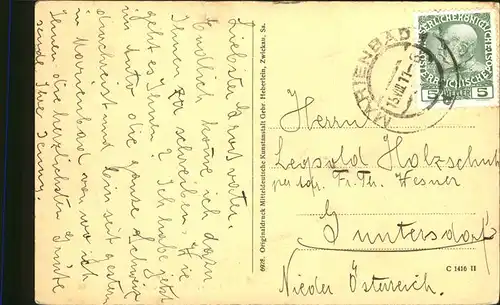 Liebster Grossvater!
Endlich komme ich dazu
Ihnen zu schreiben. Wie
geht es Ihnen? Ich habe jetzt
im Auto die ganze Schweiz
durchreist und bin seit gestern
in Marienbad von wo ich
Ihnen die herzlichsten Grüsse
sende Ihre Jenny.
6928. Originaldruck Mitteldeutsche Kunstanstalt Gebr. Heberlein, Zwickau, Sa.
MARIENBAD
13 VIII 11
5 HELLER 5
Herrn
Leopold Holzschuh
per Adr. Fr. Th. Wesner
Guntersdorf
Nieder Österreich.
C 1416 II